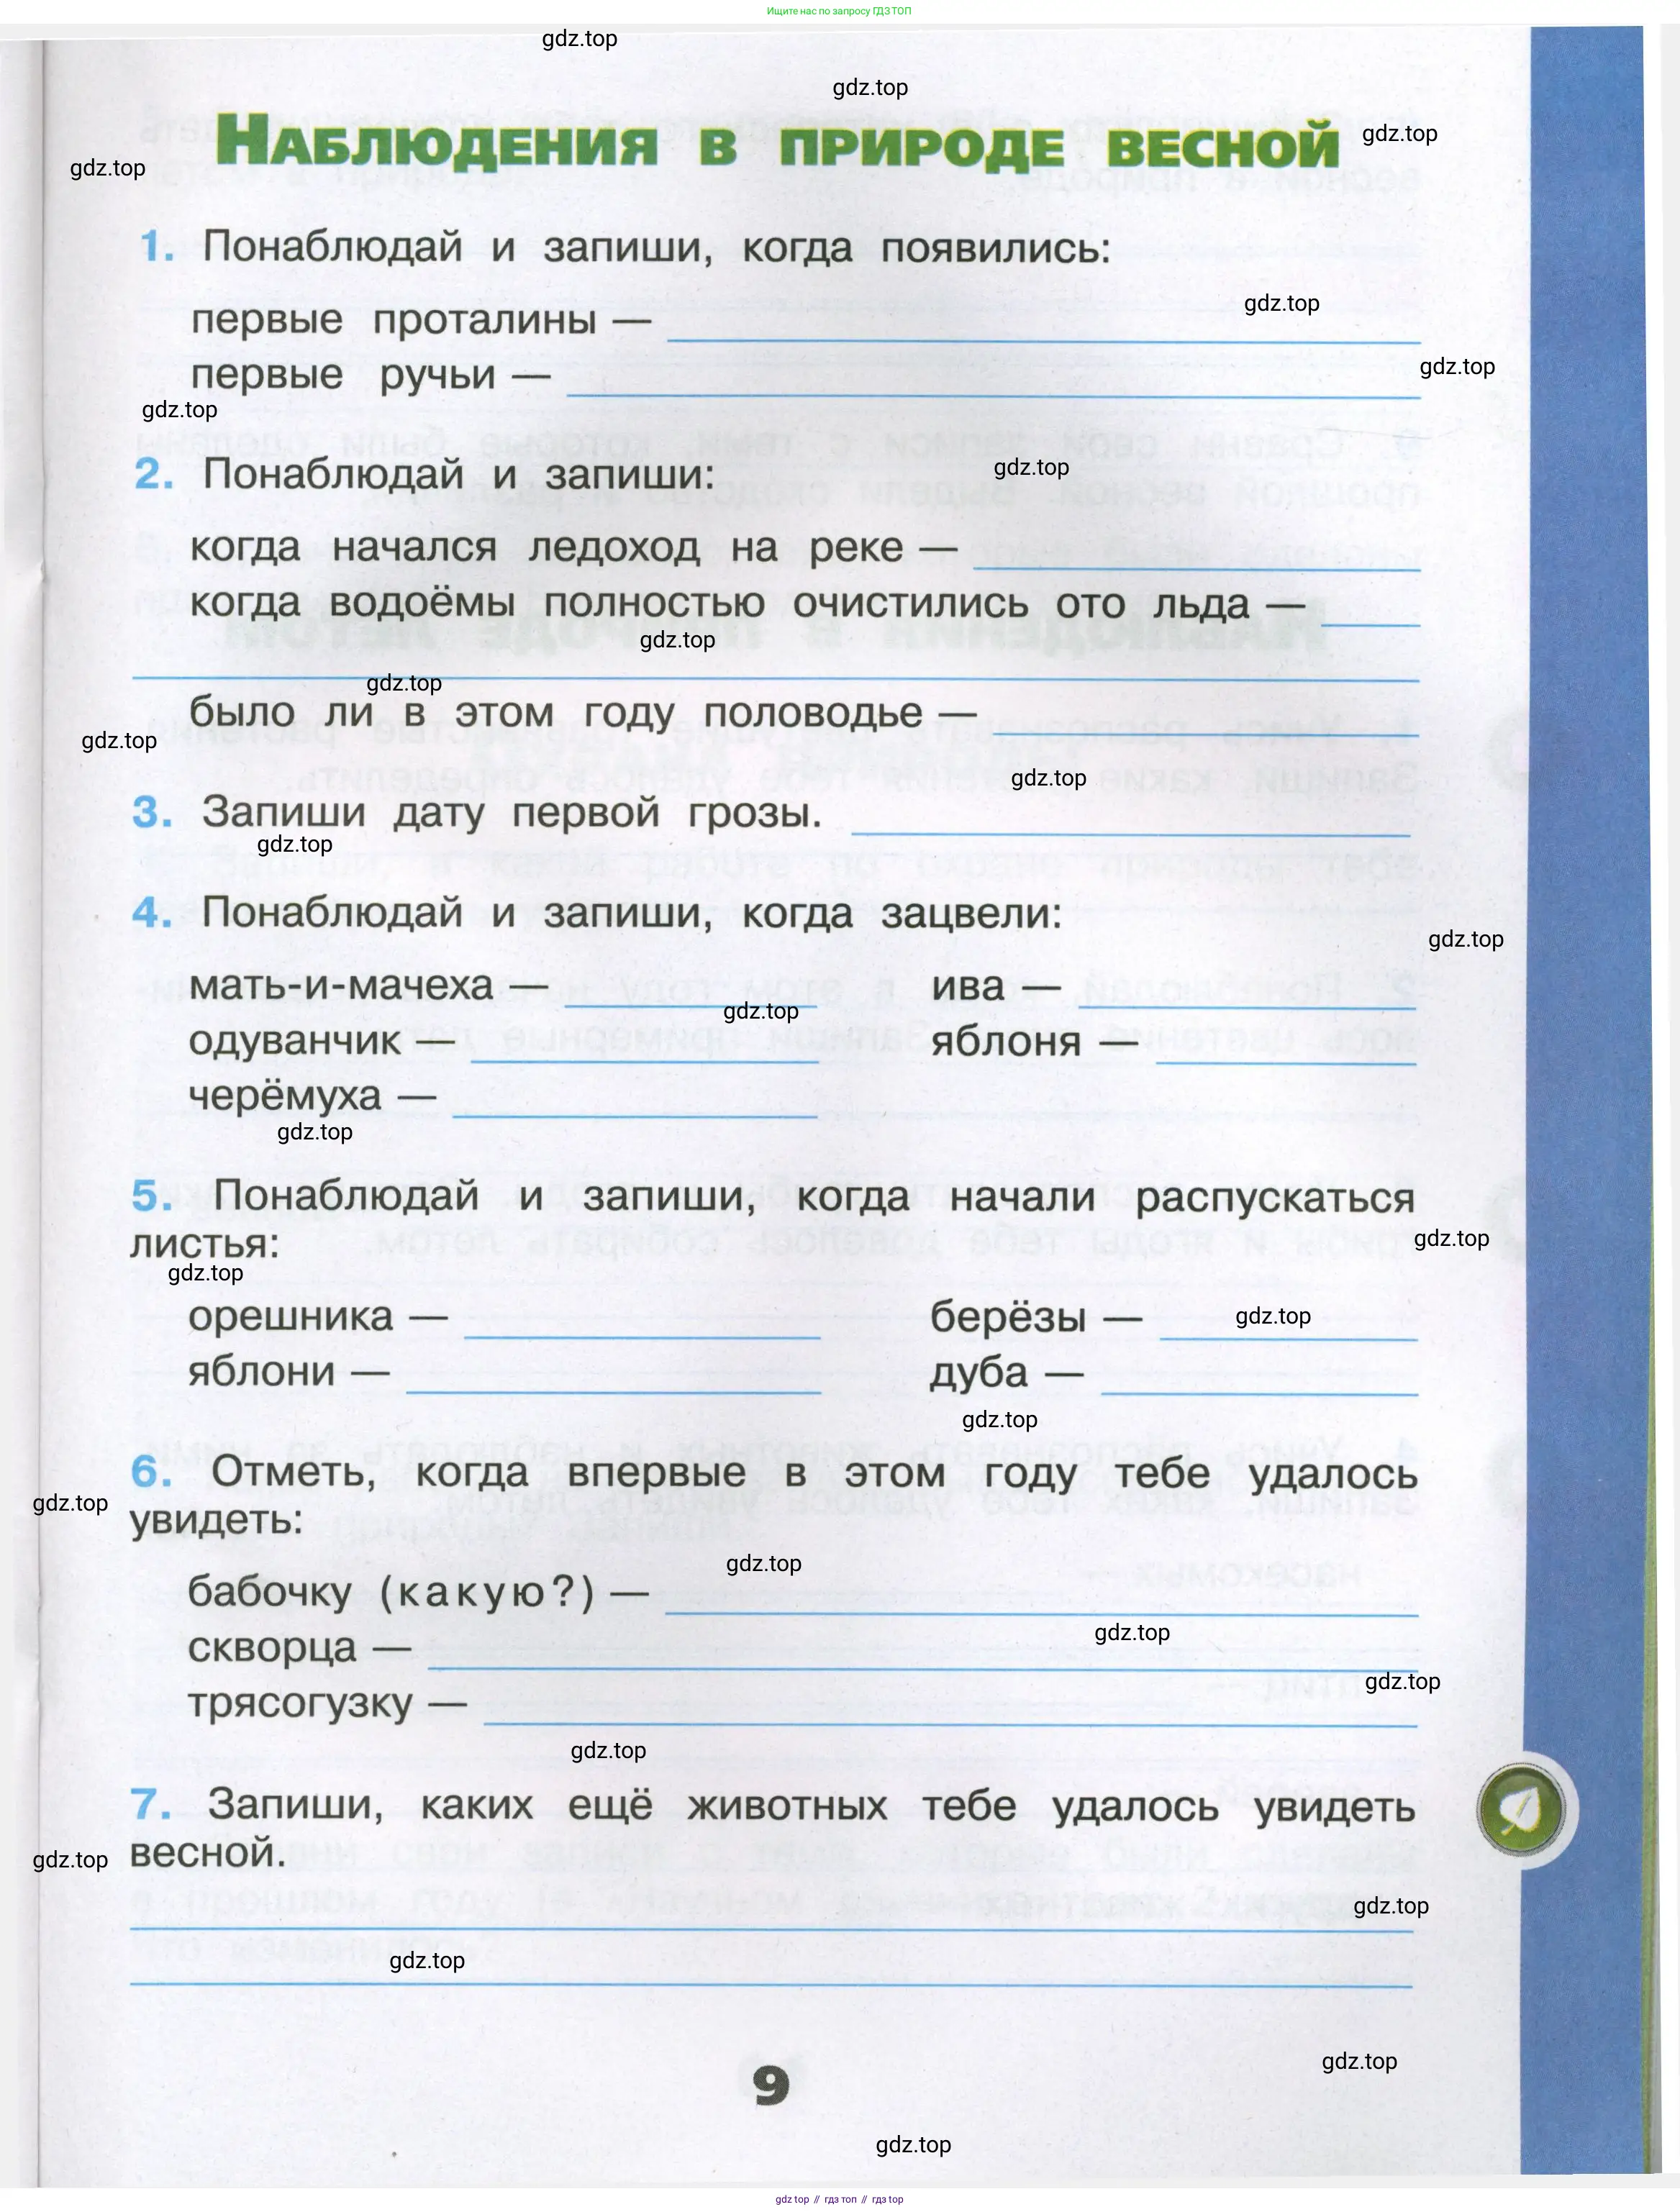 Ищите нас по запросу ГДЗ ТОП
gdz.top
gdz.top
НАБЛЮДЕНИЯ В ПРИРОДЕ ВЕСНОЙ
gdz.top
gdz.top
1. Понаблюдай и запиши, когда появились:
gdz.top
первые проталины —
gdz.top
первые ручьи —
gdz.top
2. Понаблюдай и запиши:
gdz.top
когда начался ледоход на реке —
когда водоёмы полностью очистились ото льда —
gdz.top
gdz.top
было ли в этом году половодье —
gdz.top
gdz.top
3. Запиши дату первой грозы.
gdz.top
4. Понаблюдай и запиши, когда зацвели:
gdz.top
мать-и-мачеха — ива —
gdz.top
одуванчик — яблоня —
черёмуха —
gdz.top
5. Понаблюдай и запиши, когда начали распускаться
листья:
gdz.top
gdz.top
орешника — берёзы —
gdz.top
яблони — дуба —
gdz.top
6. Отметь, когда впервые в этом году тебе удалось
gdz.top
увидеть:
gdz.top
бабочку (какую?) —
gdz.top
скворца —
gdz.top
трясогузку —
gdz.top
7. Запиши, каких ещё животных тебе удалось увидеть
весной.
gdz.top
gdz.top
gdz.top
gdz.top
9
gdz.top
gdz top // гдз топ // гдз top